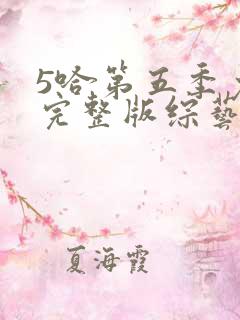 5哈第五季
完整版综藝
夏海霞